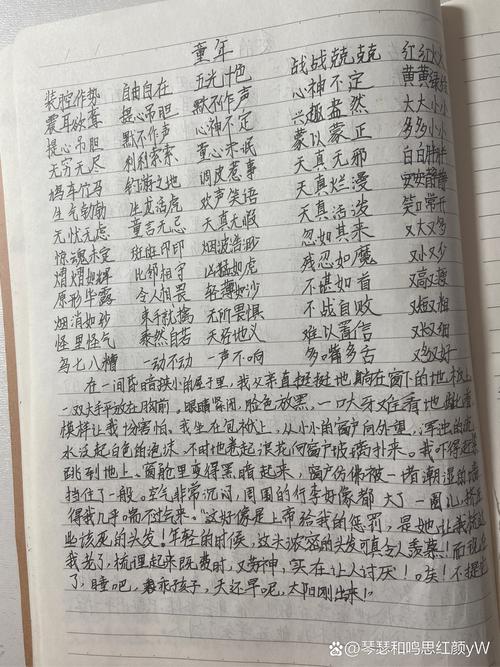 童年
装腔作势 自由自在 五光十色 战战兢兢 红红火火
震耳欲聋 提心吊胆 默不作声 心神不定 黄黄绿绿
提心吊胆 默不作声 心神不定 兴趣盎然 大大小小
无穷无尽 利利索索 童心未泯 蒙以蒙正 多多少少
竹马 钓游之地 调皮惹事 天真无邪 白白胖胖
生气勃勃 生龙活虎 欢声笑语 天真烂漫 安安静静
无忧无虑 童言无忌 天真无暇 天真活泼 笑口常开
惊魂未定 斑斑印印 烟波浩渺 忽如其来 又大又多
熠熠如辉 比邻相守 凶猛如虎 残忍如魔 又小又少
原形毕露 令人相畏 轻薄如沙 不堪如首 又高又薄
烟消如砂 束手就擒 无所畏惧 不战自败 又短又粗
怪里怪气 泰然自若 天经地义 难以置信 又长又细
乌七八糟 一动不动 一声不响 多嘴多舌 又多又好
在一间昏暗狭小的屋子里，我父亲直挺挺地躺在窗下的地板上
一双大手平放在胸前。眼睛紧闭，脸色放黑，一口大牙难看地
模样让我份害怕。我坐在包袱上，从小小的窗户向外望，浑浊的
水泛起白色的泡沫，不时地卷起浪花向窗户玻璃扑来。我吓得
跳到地上。面舱里变得黑暗起来，窗户仿佛被一堵潮湿的墙
挡住了一般。空气非常沉闷，周围的行李好像都 大了一圈儿，挤
得我几乎喘不过气来。“这好像是上帝给我的惩罚，是她让我梳这
些该死的头发！年轻的时候，这头浓密的头发可真令人羡慕！而现在
我老了，梳理起来既费时，又劳神，实在让人讨厌！唉！不提
了，睡吧，乖孩子，天还早呢，太阳刚出来！”
@琴瑟和鸣思红颜yW